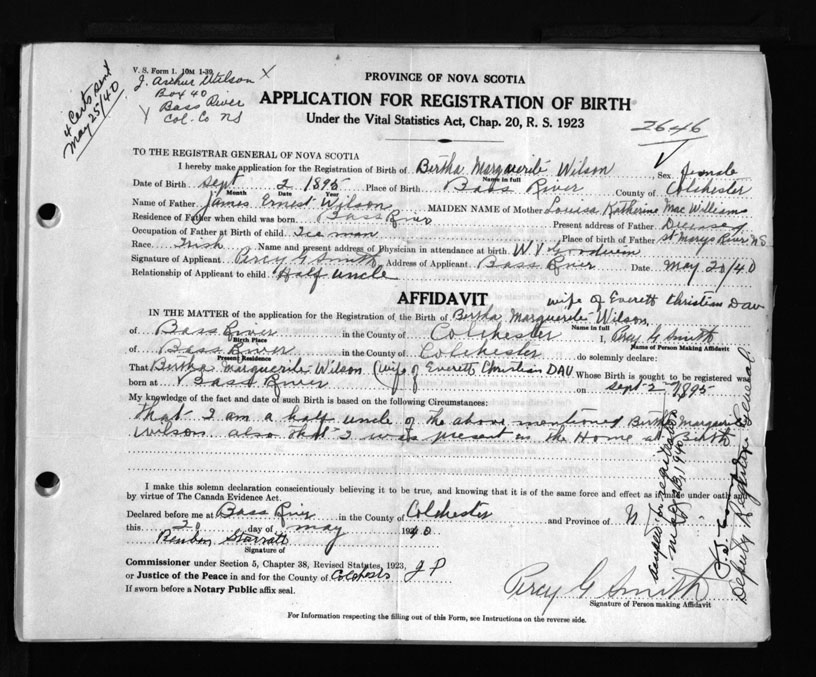 V. S. Form 1. 10M 1-39
J. Arthur Wilson X
Box 40
Bass River
Col. Co NS
4 Certs sent
May 25/40
PROVINCE OF NOVA SCOTIA
APPLICATION FOR REGISTRATION OF BIRTH
Under the Vital Statistics Act, Chap. 20, R. S. 1923
2646
TO THE REGISTRAR GENERAL OF NOVA SCOTIA
I hereby make application for the Registration of Birth of Bertha Marguerite Wilson Sex female
Name in full
Date of Birth Sept 2 1895 Place of Birth Bass River County of Colchester
Month Date Year
Name of Father James Ernest Wilson MAIDEN NAME of Mother Louisa Katherine MacWilliams
Residence of Father when child was born Bass River Present address of Father
Occupation of Father at Birth of child Place of birth of Father St Marys River NS
Race Irish Name and present address of Physician in attendance at birth W. Y. Goodwin
Signature of Applicant Percy G Smith Address of Applicant Bass River Date May 20/40
Relationship of Applicant to child Half uncle
AFFIDAVIT
wife of Everett Christian Dav
IN THE MATTER of the application for the Registration of the Birth of Bertha Marguerite Wilson
Name in full
of Bass River in the County of Colchester I, Percy G Smith
Birth Place Name of Person Making Affidavit
of Bass River in the County of Colchester do solemnly declare:
Present Residence
That Bertha Marguerite Wilson (wife of Everett Christian DAV Whose Birth is sought to be registered was
born at Bass River on Sept 2 1895
My knowledge of the fact and date of such Birth is based on the following Circumstances:
that I am a half uncle of the above mentioned Bertha Marguerite
Wilson also that I was present in the Home at Birth
I make this solemn declaration conscientiously believing it to be true, and knowing that it is of the same force and effect as if made under oath and
by virtue of The Canada Evidence Act.
Declared before me at Bass River in the County of Colchester and Province of N
this 20 day of May 1940
Starratt
Signature of
Commissioner under Section 5, Chapter 38, Revised Statutes, 1923, J P
or Justice of the Peace in and for the County of Colchester
If sworn before a Notary Public affix seal.
Percy G Smith
Signature of Person making Affidavit
For Information respecting the filling out of this Form, see Instructions on the reverse side.
accepted for registration
Deputy Registrar General